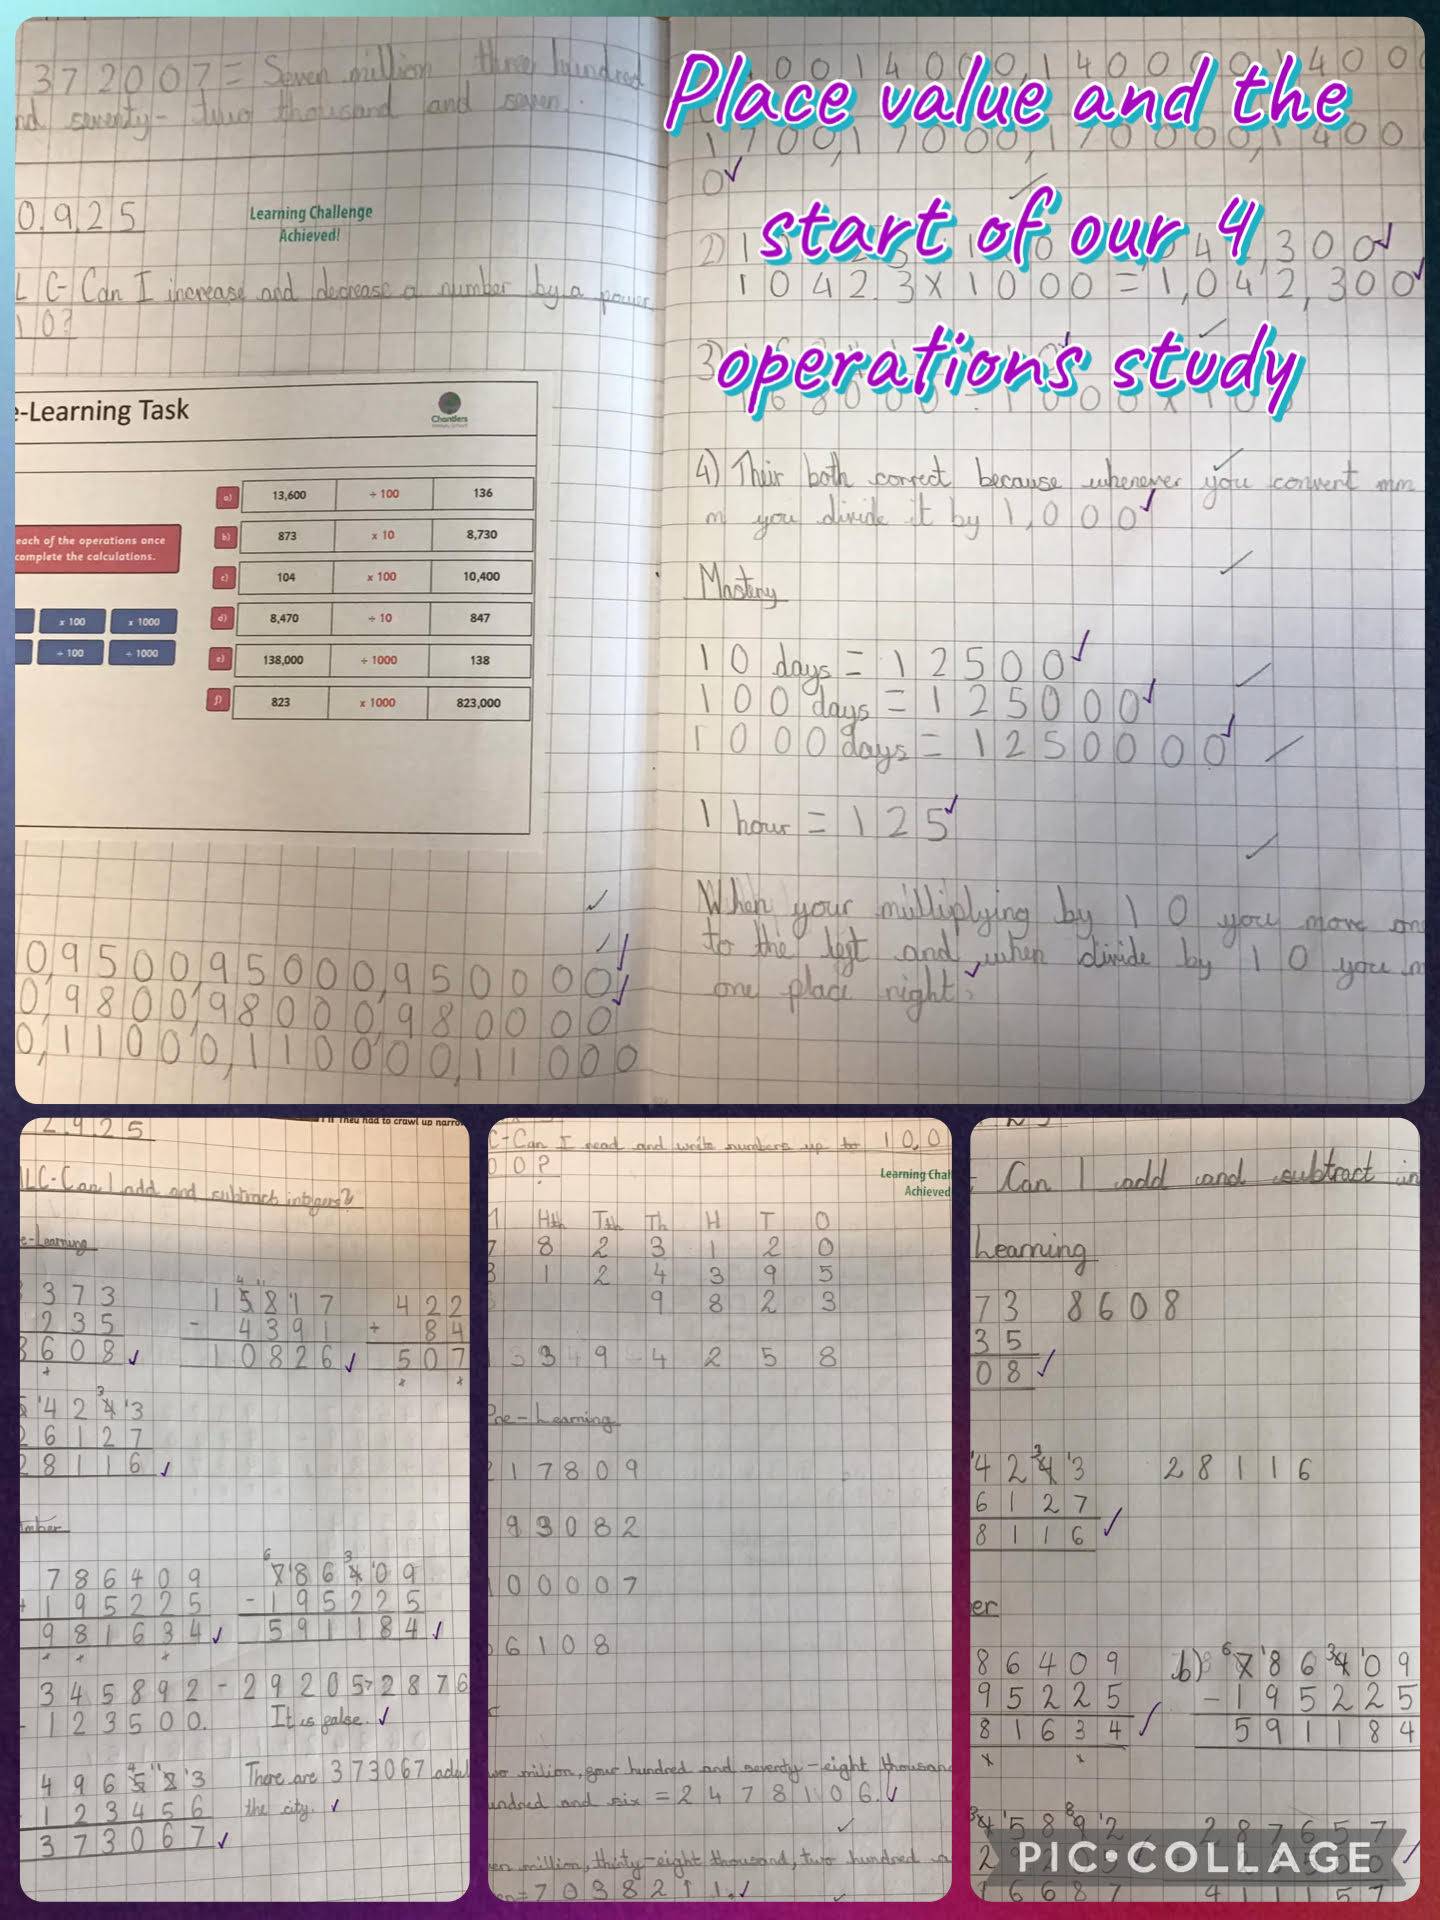 Place value and the
start of our 4
operations study
372007 = Seven million three hundred
nd seventy-two thousand and seven.
0.9.25
Learning Challenge
Achieved!
LC- Can I increase and decrease a number by a power
10?
e-Learning Task
Chanders
each of the operations once
complete the calculations.
x 100 x 1000
÷ 100 ÷ 1000
a) 13,600 ÷ 100 136
b) 873 x 10 8,730
c) 104 x 100 10,400
d) 8,470 ÷ 10 847
e) 138,000 ÷ 1000 138
f) 823 x 1000 823,000
0,9500,95000,950000
0,9800,98000,980000
0,11000,110000,11000
1700,17000,170000,1400
0
2)
10423 x 1000 = 1,042,300
3)
4) Their both correct because whenever you convert mm
m you divide it by 1,000
Mastery
10 days = 12500
100 days = 125000
1000 days = 1250000
1 hour = 125
When your multiplying by 10 you move one
to the left and when divide by 10 you m
one place right.
2.9.25
They had to crawl up narro
LC-Can I add and subtract integers?
e-Learning
373 15817 422
235 - 4391 + 84
8608 10826 507
4243
26127
28116
mber
786409 786409
+195225 -195225
981634 591184
345892 - 29205> 2876
-123500. It is false.
496523 There are 373067 adul
123456 the city.
373067
C-Can I read and write numbers up to 10,0
00?
Learning Chal
Achieved
M Hth Tth Th H T O
7 8 2 3 1 2 0
3 1 2 4 3 9 5
9 8 2 3
9 4 2 5 8
Pre-Learning
217809
93082
100007
6108
wo milion, four hundred and seventy-eight thousan
undred and six = 2478106.
en million, thirty-eight thousand, two hundred a
en=7038211.
Can I add and subtract in
Learning
73 8608
35
08
4243 28116
6127
8116
er
86409 b) 786409
95225 -195225
81634 591184
45892 287657
16687 411157
PIC•COLLAGE